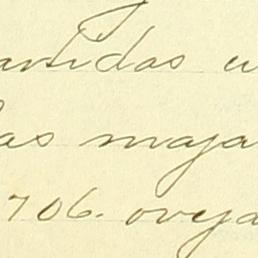 antidas u
las maja
706. oveja